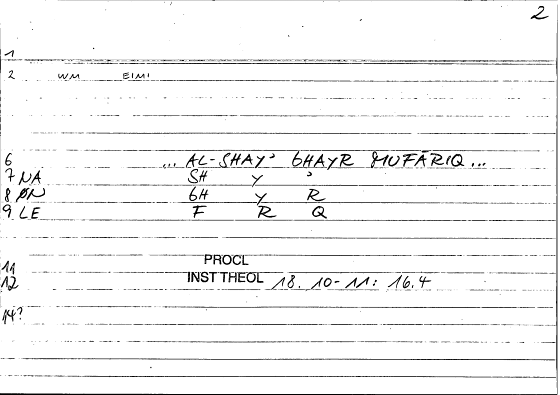 2
1
2 WM EIMI
6 ... AL-SHAY' GHAYR MUFĀRIQ ...
7 NA SH Y '
8 ØN GH Y R
9 LE F R Q
11 PROCL
12 INST THEOL 18. 10-11: 16.4
14?